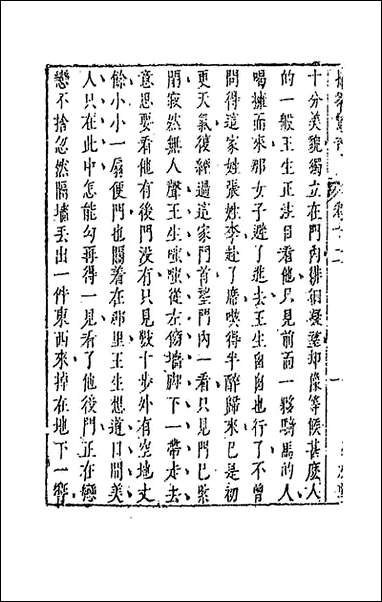 拍案驚奇 卷十二
十分美貌獨立在門內徘徊凝望却像等候甚麽人
的一般王生正注目看他只見前面一夥騎馬的人
喝擁而來那女子避了進去王生匆匆也行了不曾
問得這家姓張姓李赴了席喫得半醉歸來已是初
更天氣復經過這家門首望門內一看只見門已緊
閉寂然無人聲王生嗤嗤從左傍墻脚下一帶走去
意思要看他有後門没有只見數十步外有空地丈
餘小小一扇便門也關着在那里王生想道日間美
人只在此中怎能勾再得一見看了他後門正在戀
戀不捨忽然隔墻丢出一件東西來掉在地下一響